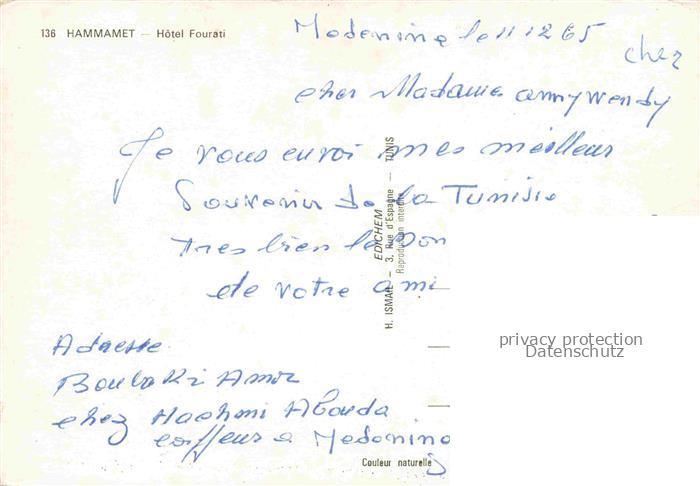 136 HAMMAMET — Hôtel Fourati
Medenine le 11 12 65
chez
cher Madame annywendy
Je vous envoi mes meilleur
Souvenir de la Tunisie
tres bien le Bon
de votre ami
Adresse
Boubakri Amor
chez Hachmi Abouda
coiffeur a Medenine
H. ISMAIL — 3, Rue d'Espagne — TUNIS
EDICHEM
Reproduction interdite
Couleur naturelle
privacy protection
Datenschutz